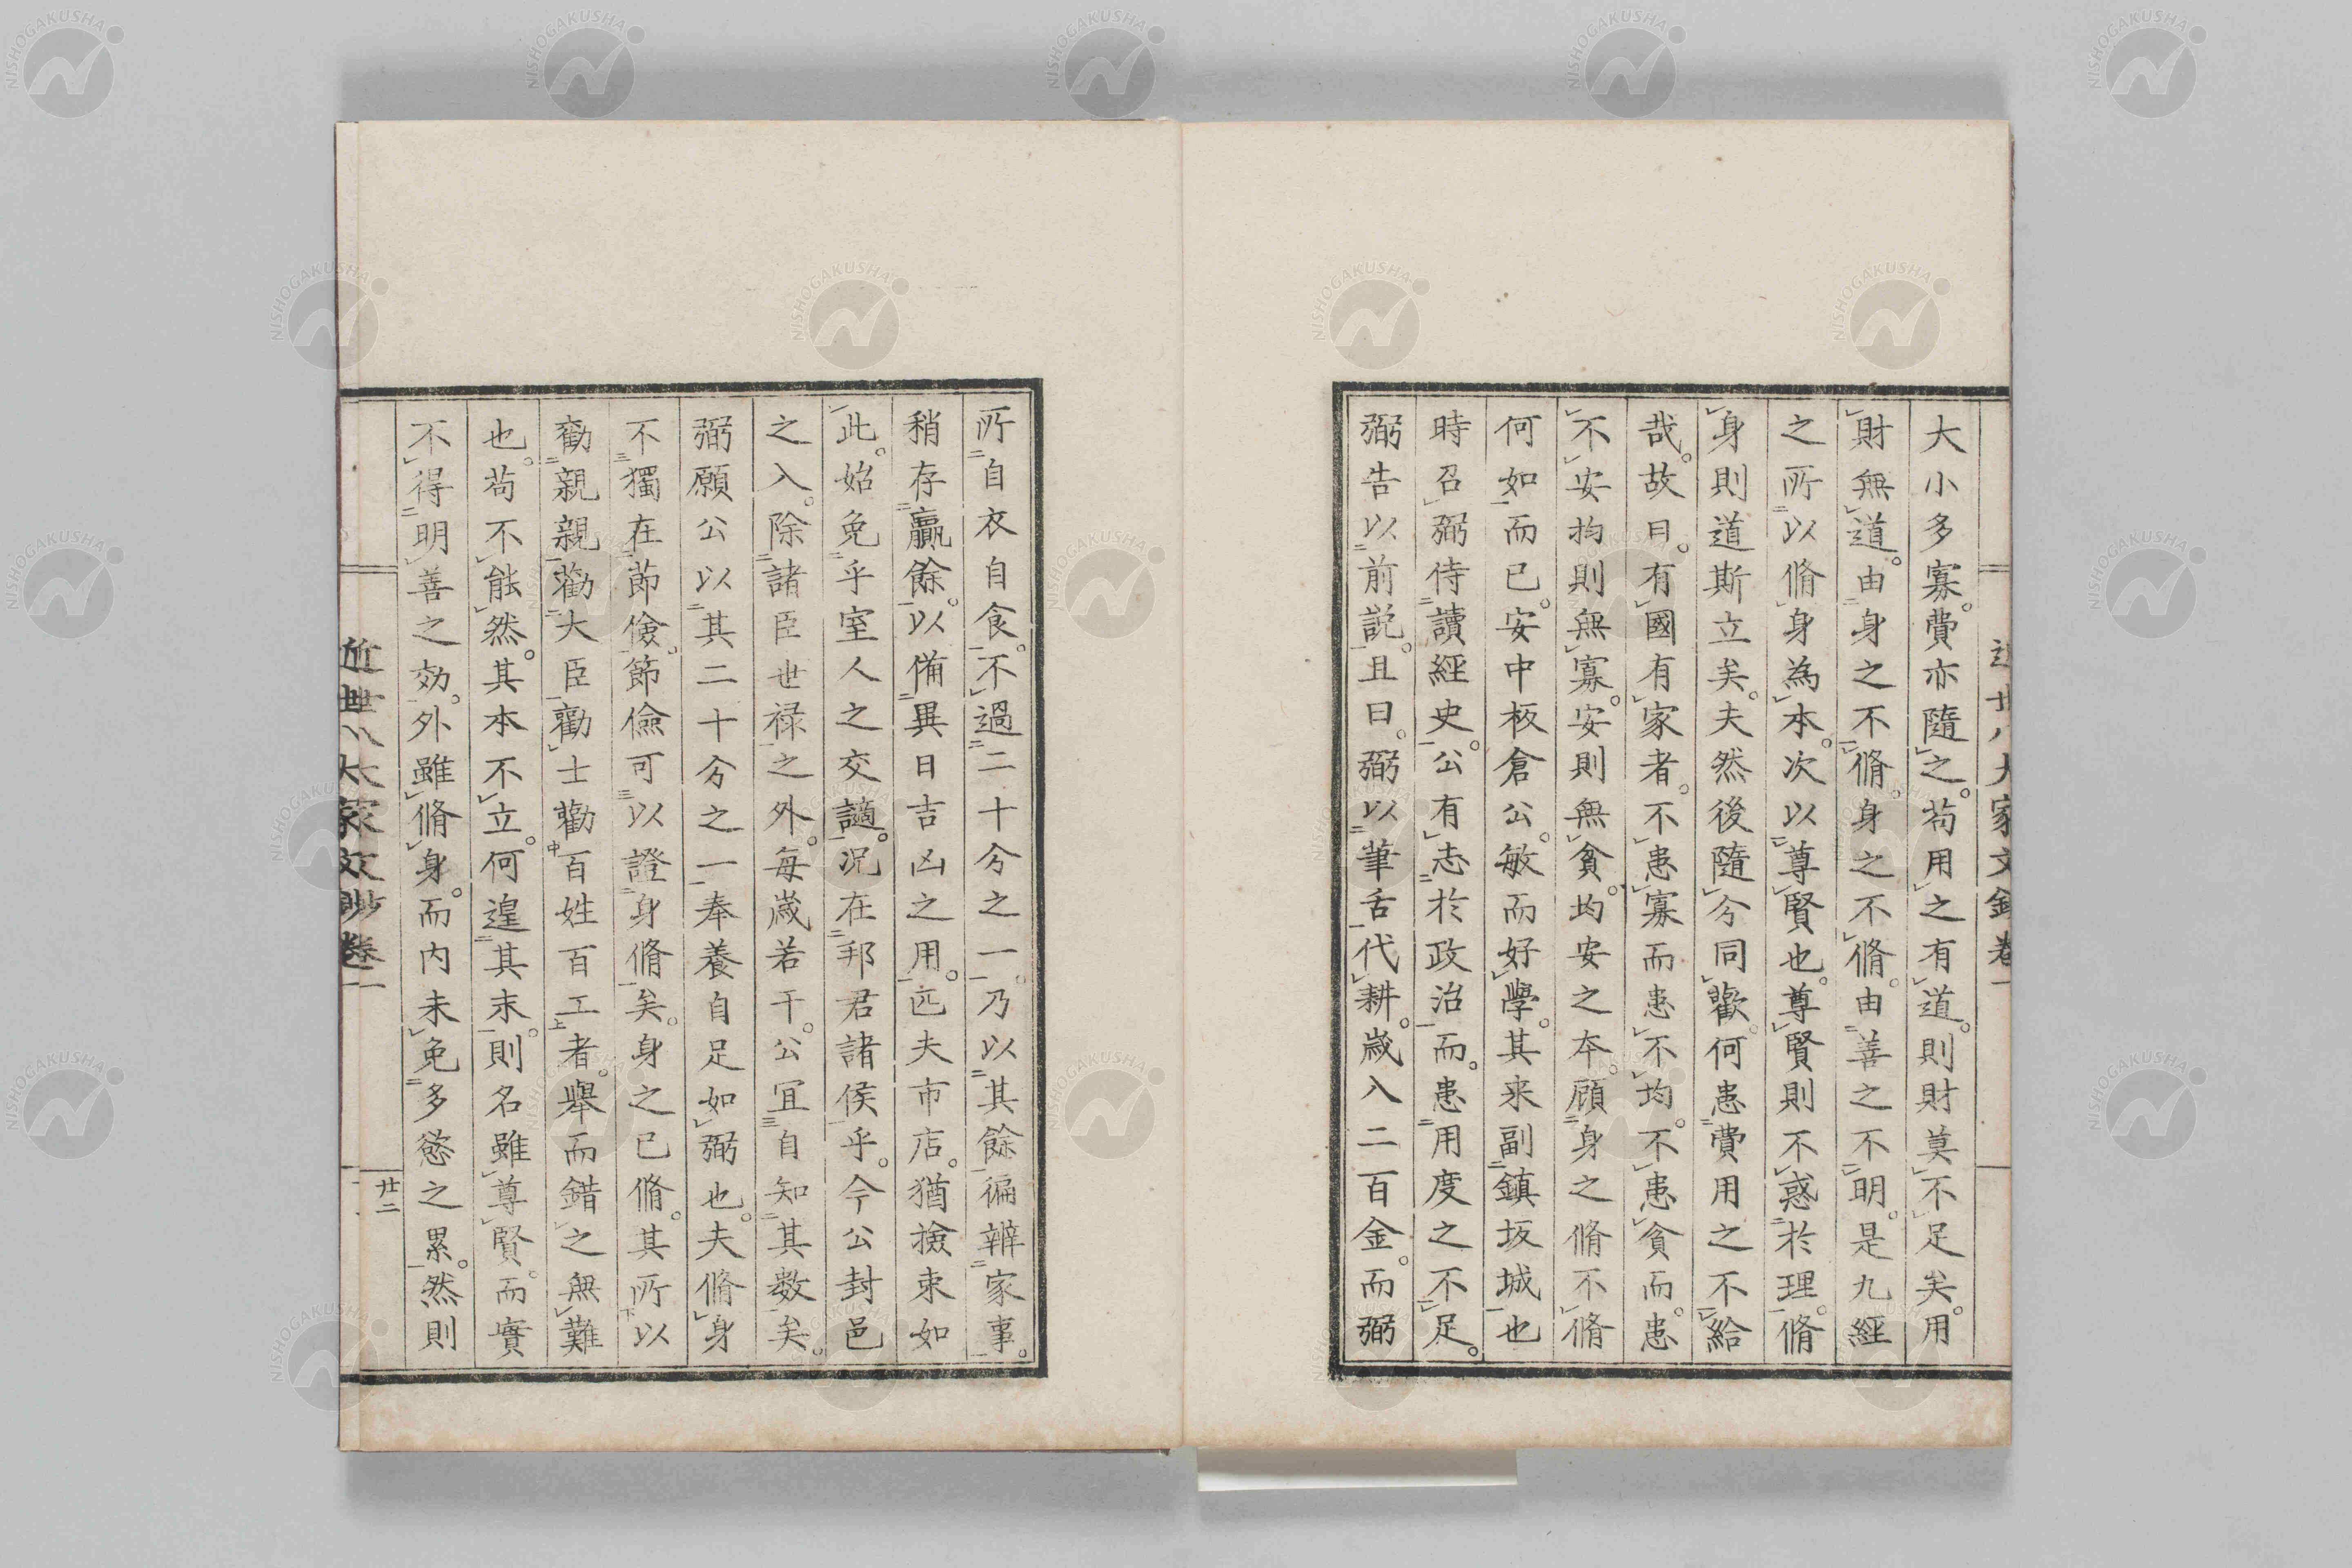 大小多寡。費亦隨之。苟用之有道。則財莫不足矣。用
財無道。由身之不脩。身之不脩。由善之不明。是九經
之所以脩身為本。次以尊賢也。尊賢則不惑於理。脩
身則道斯立矣。夫然後隨分同歡。何患費用之不給
哉。故曰。有國有家者。不患寡而患不均。不患貧而患
不安。均則無寡。安則無貧。均安之本。顧身之脩不脩
何如而已。安中板倉公。敏而好學。其来副鎮坂城也
時召弼侍讀經史。公有志於政治。而患用度之不足。
弼告以前説。且曰。弼以筆舌代耕。歳入二百金。而弼
所自衣自食。不過二十分之一。乃以其餘徧辨家事。
稍存贏餘。以備異日吉凶之用。匹夫市店。猶撿束如
此。始免乎室人之交讁。况在邦君諸侯乎。今公封邑
之入。除諸臣世禄之外。毎歳若干。公冝自知其数矣。
弼願公以其二十分之一奉養自足如弼也。夫脩身
不獨在節儉。節儉可以證身脩矣。身之已脩。其所以
勸親親勸大臣勸士勸百姓百工者。舉而錯之無難
也。苟不能然。其本不立。何遑其末。則名雖尊賢。而實
不得明善之効。外雖脩身。而内未免多慾之累。然則
近世八大家文鈔 卷一
廿二
NISHOGAKUSHA